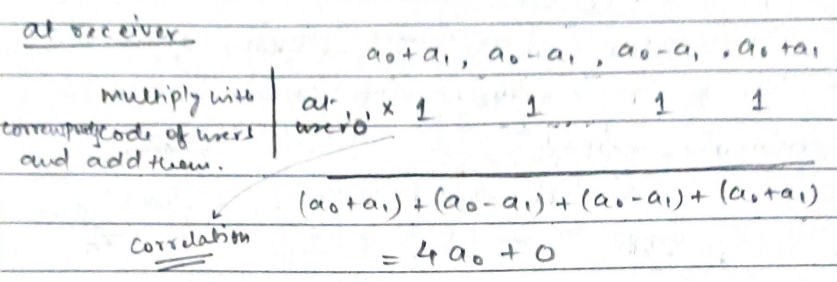 at receiver
a₀+a₁, a₀-a₁, a₀-a₁, a₀+a₁
multiply with
corresponding code of users
and add them.
at user '0' × 1 1 1 1
(a₀+a₁)+(a₀-a₁)+(a₀-a₁)+(a₀+a₁)
correlation
= 4a₀ + 0